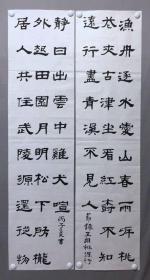 漁舟逐水愛山春兩岸桃
花夾古津坐看紅樹不知
遠行盡青溪不見人
節錄王維桃源行
居人共住武陵源還從物
外起田園月明松下房櫳
静日出雲中雞犬喧